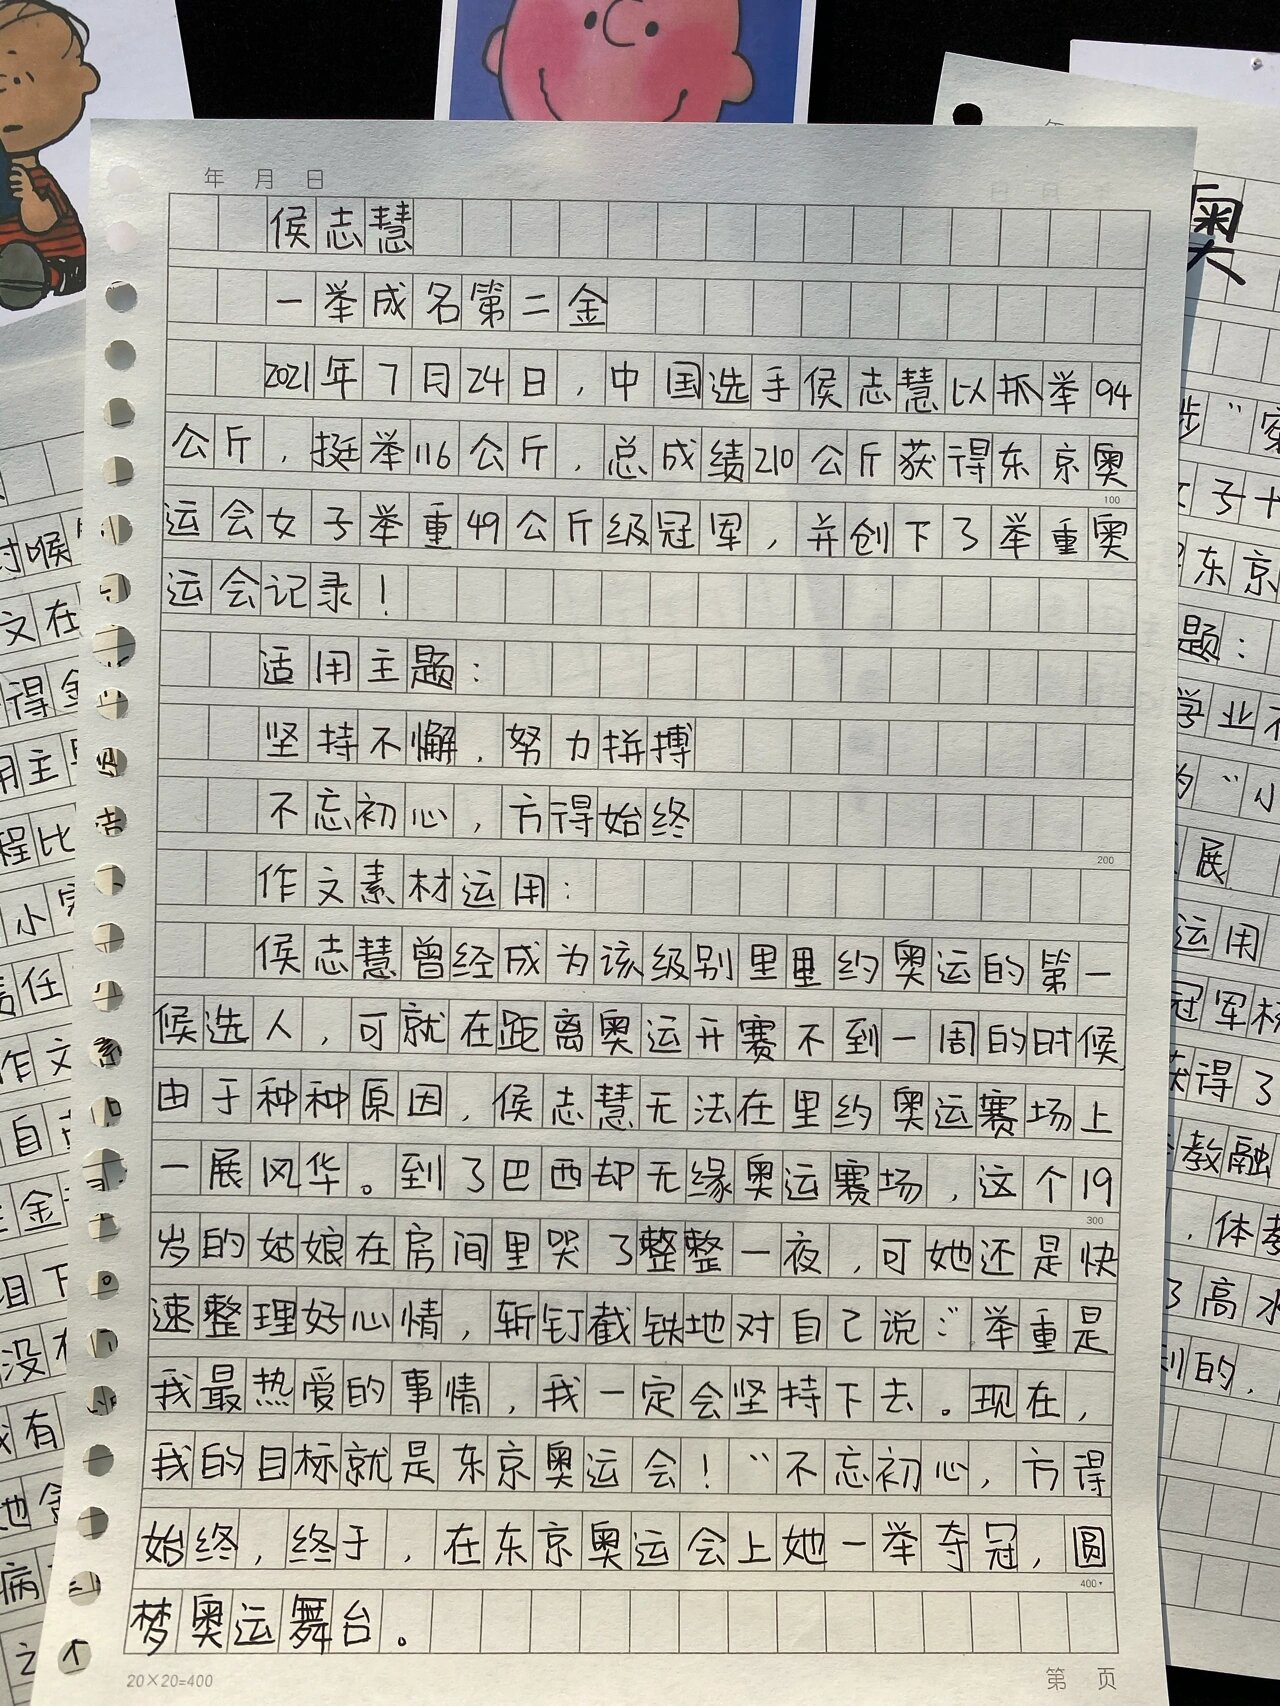 年 月 日
侯志慧
一举成名第二金
2021年7月24日，中国选手侯志慧以抓举94
公斤，挺举116公斤，总成绩210公斤获得东京奥
100
运会女子举重49公斤级冠军，并创下了举重奥
运会记录！
适用主题：
坚持不懈，努力拼搏
不忘初心，方得始终
200
作文素材运用：
侯志慧曾经成为该级别里里约奥运的第一
候选人，可就在距离奥运开赛不到一周的时候
由于种种原因，侯志慧无法在里约奥运赛场上
一展风华。到了巴西却无缘奥运赛场，这个19
300
岁的姑娘在房间里哭了整整一夜，可她还是快
速整理好心情，斩钉截铁地对自己说：“举重是
我最热爱的事情，我一定会坚持下去。现在，
我的目标就是东京奥运会！”不忘初心，方得
始终，终于，在东京奥运会上她一举夺冠，圆
400
梦奥运舞台。
20×20=400
第 页
奥
女子十
东京
题：
学业不
的“小
展
运用
冠军杨
获得了
教融
，体教
了高水
到的，
时候
文在
得金
用主题
程比
小
责任
作文
自
金
目下
没有
有
她
病
之